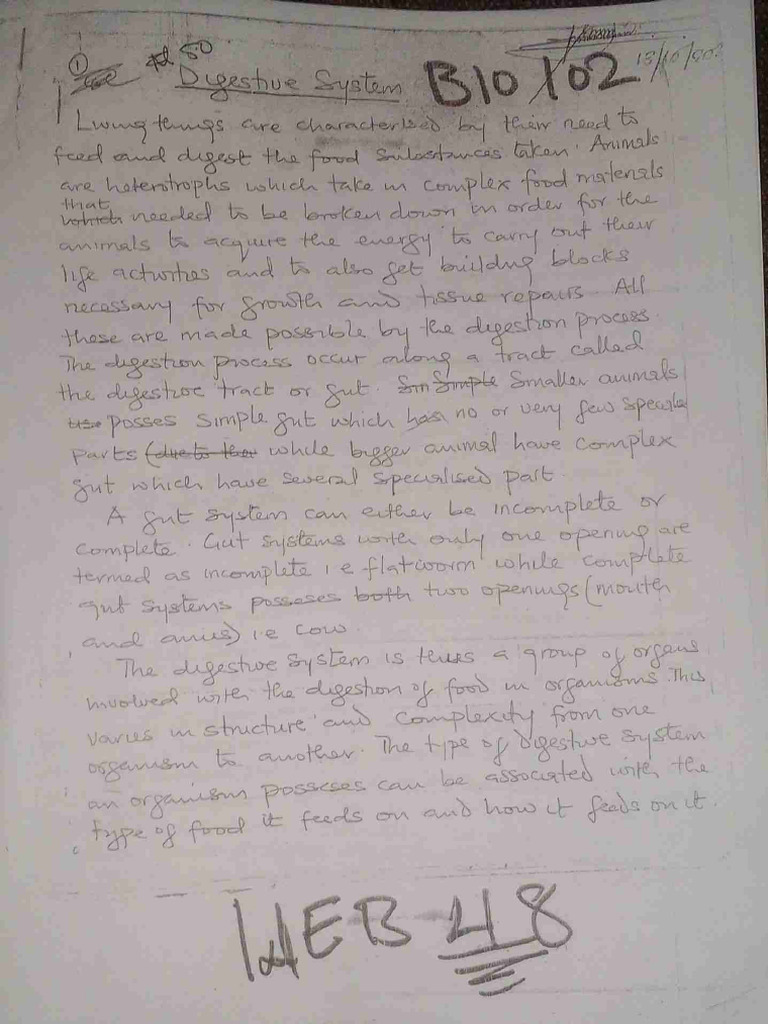 ① 50
Digestive System BIO 102
Living things are characterised by their need to
feed and digest the food substances taken. Animals
are heterotrophs which take in complex food materials
that
which needed to be broken down in order for the
animals to acquire the energy to carry out their
life activities and to also get building blocks
necessary for growth and tissue repairs. All
these are made possible by the digestion process.
The digestion process occur along a tract called
the digestive tract or gut. Sm Simple Smaller animals
posses simple gut which has no or very few special
parts (due to their while bigger animal have complex
gut which have several specialised part.
A gut system can either be incomplete or
complete. Gut systems with only one opening are
termed as incomplete i.e flatworm while complete
gut systems posseses both two openings (mouth
and anus) i.e cow.
The digestive system is thus a group of organs
involved with the digestion of food in organisms. This
varies in structure and complexity from one
organism to another. The type of digestive system
an organism posseses can be associated with the
type of food it feeds on and how it feeds on it.
WEB 48